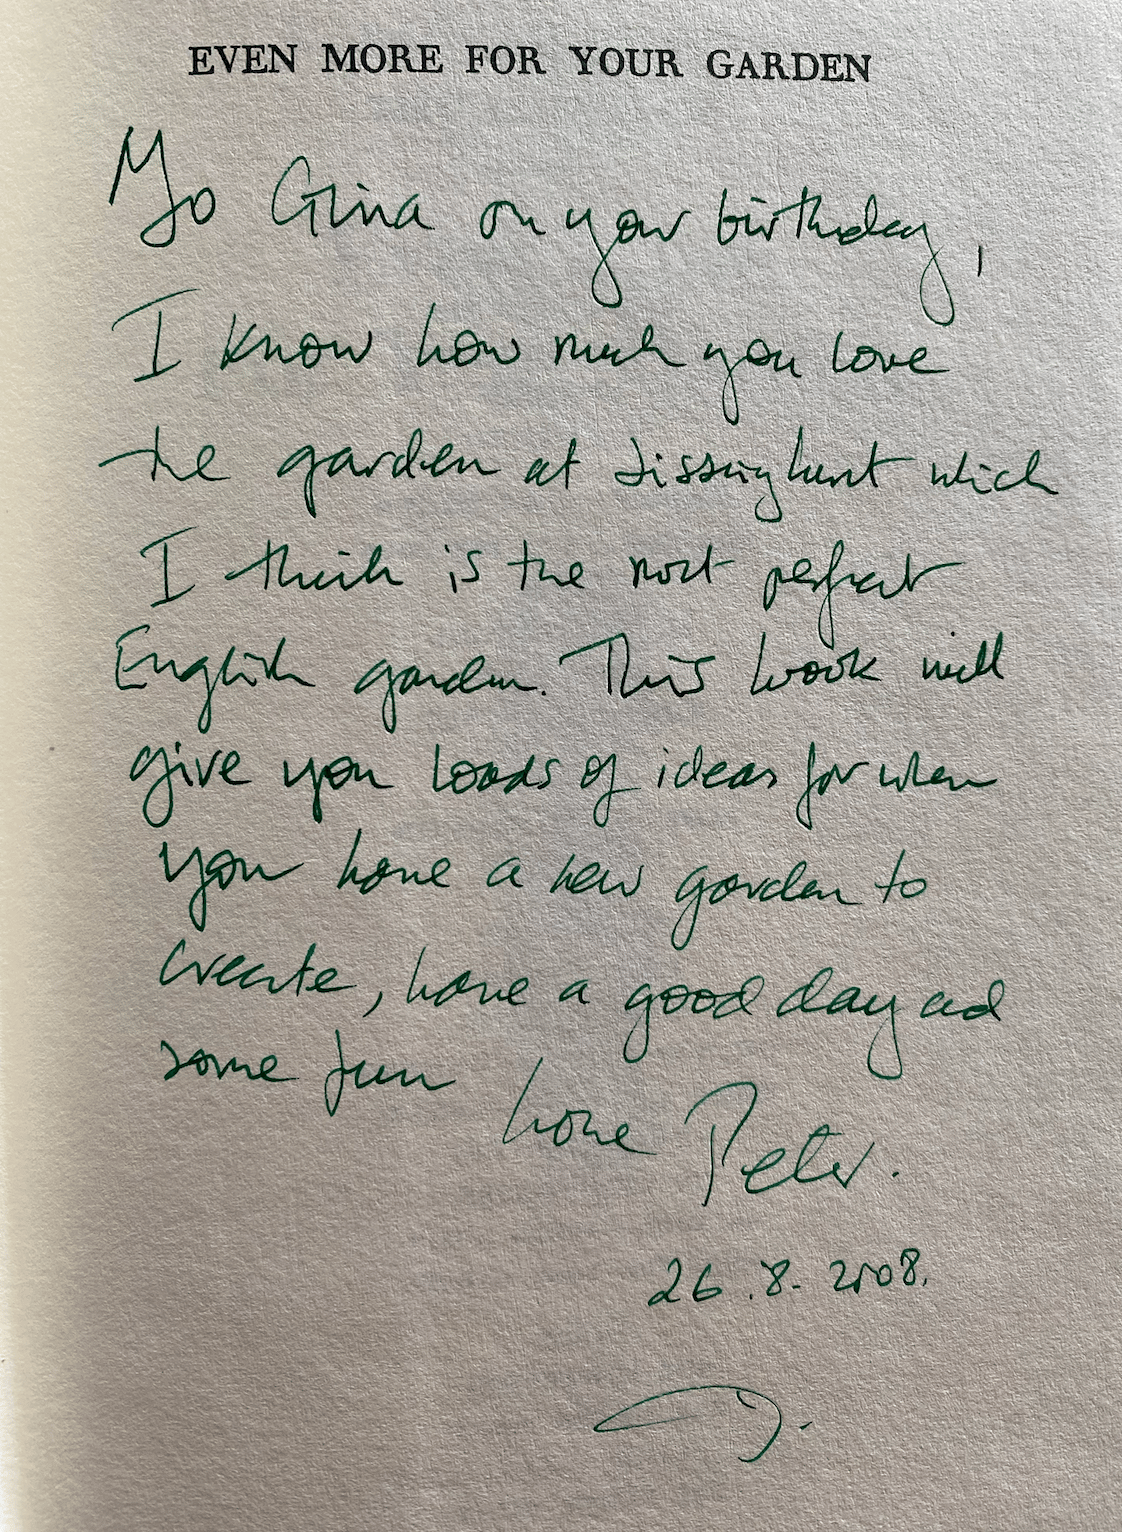 EVEN MORE FOR YOUR GARDEN
To Gina on your birthday,
I know how much you love
the garden at Sissinghurst which
I think is the most perfect
English garden. This book will
give you loads of ideas for when
you have a new garden to
create, have a good day and
some fun
love Peter.
26.8.2008.